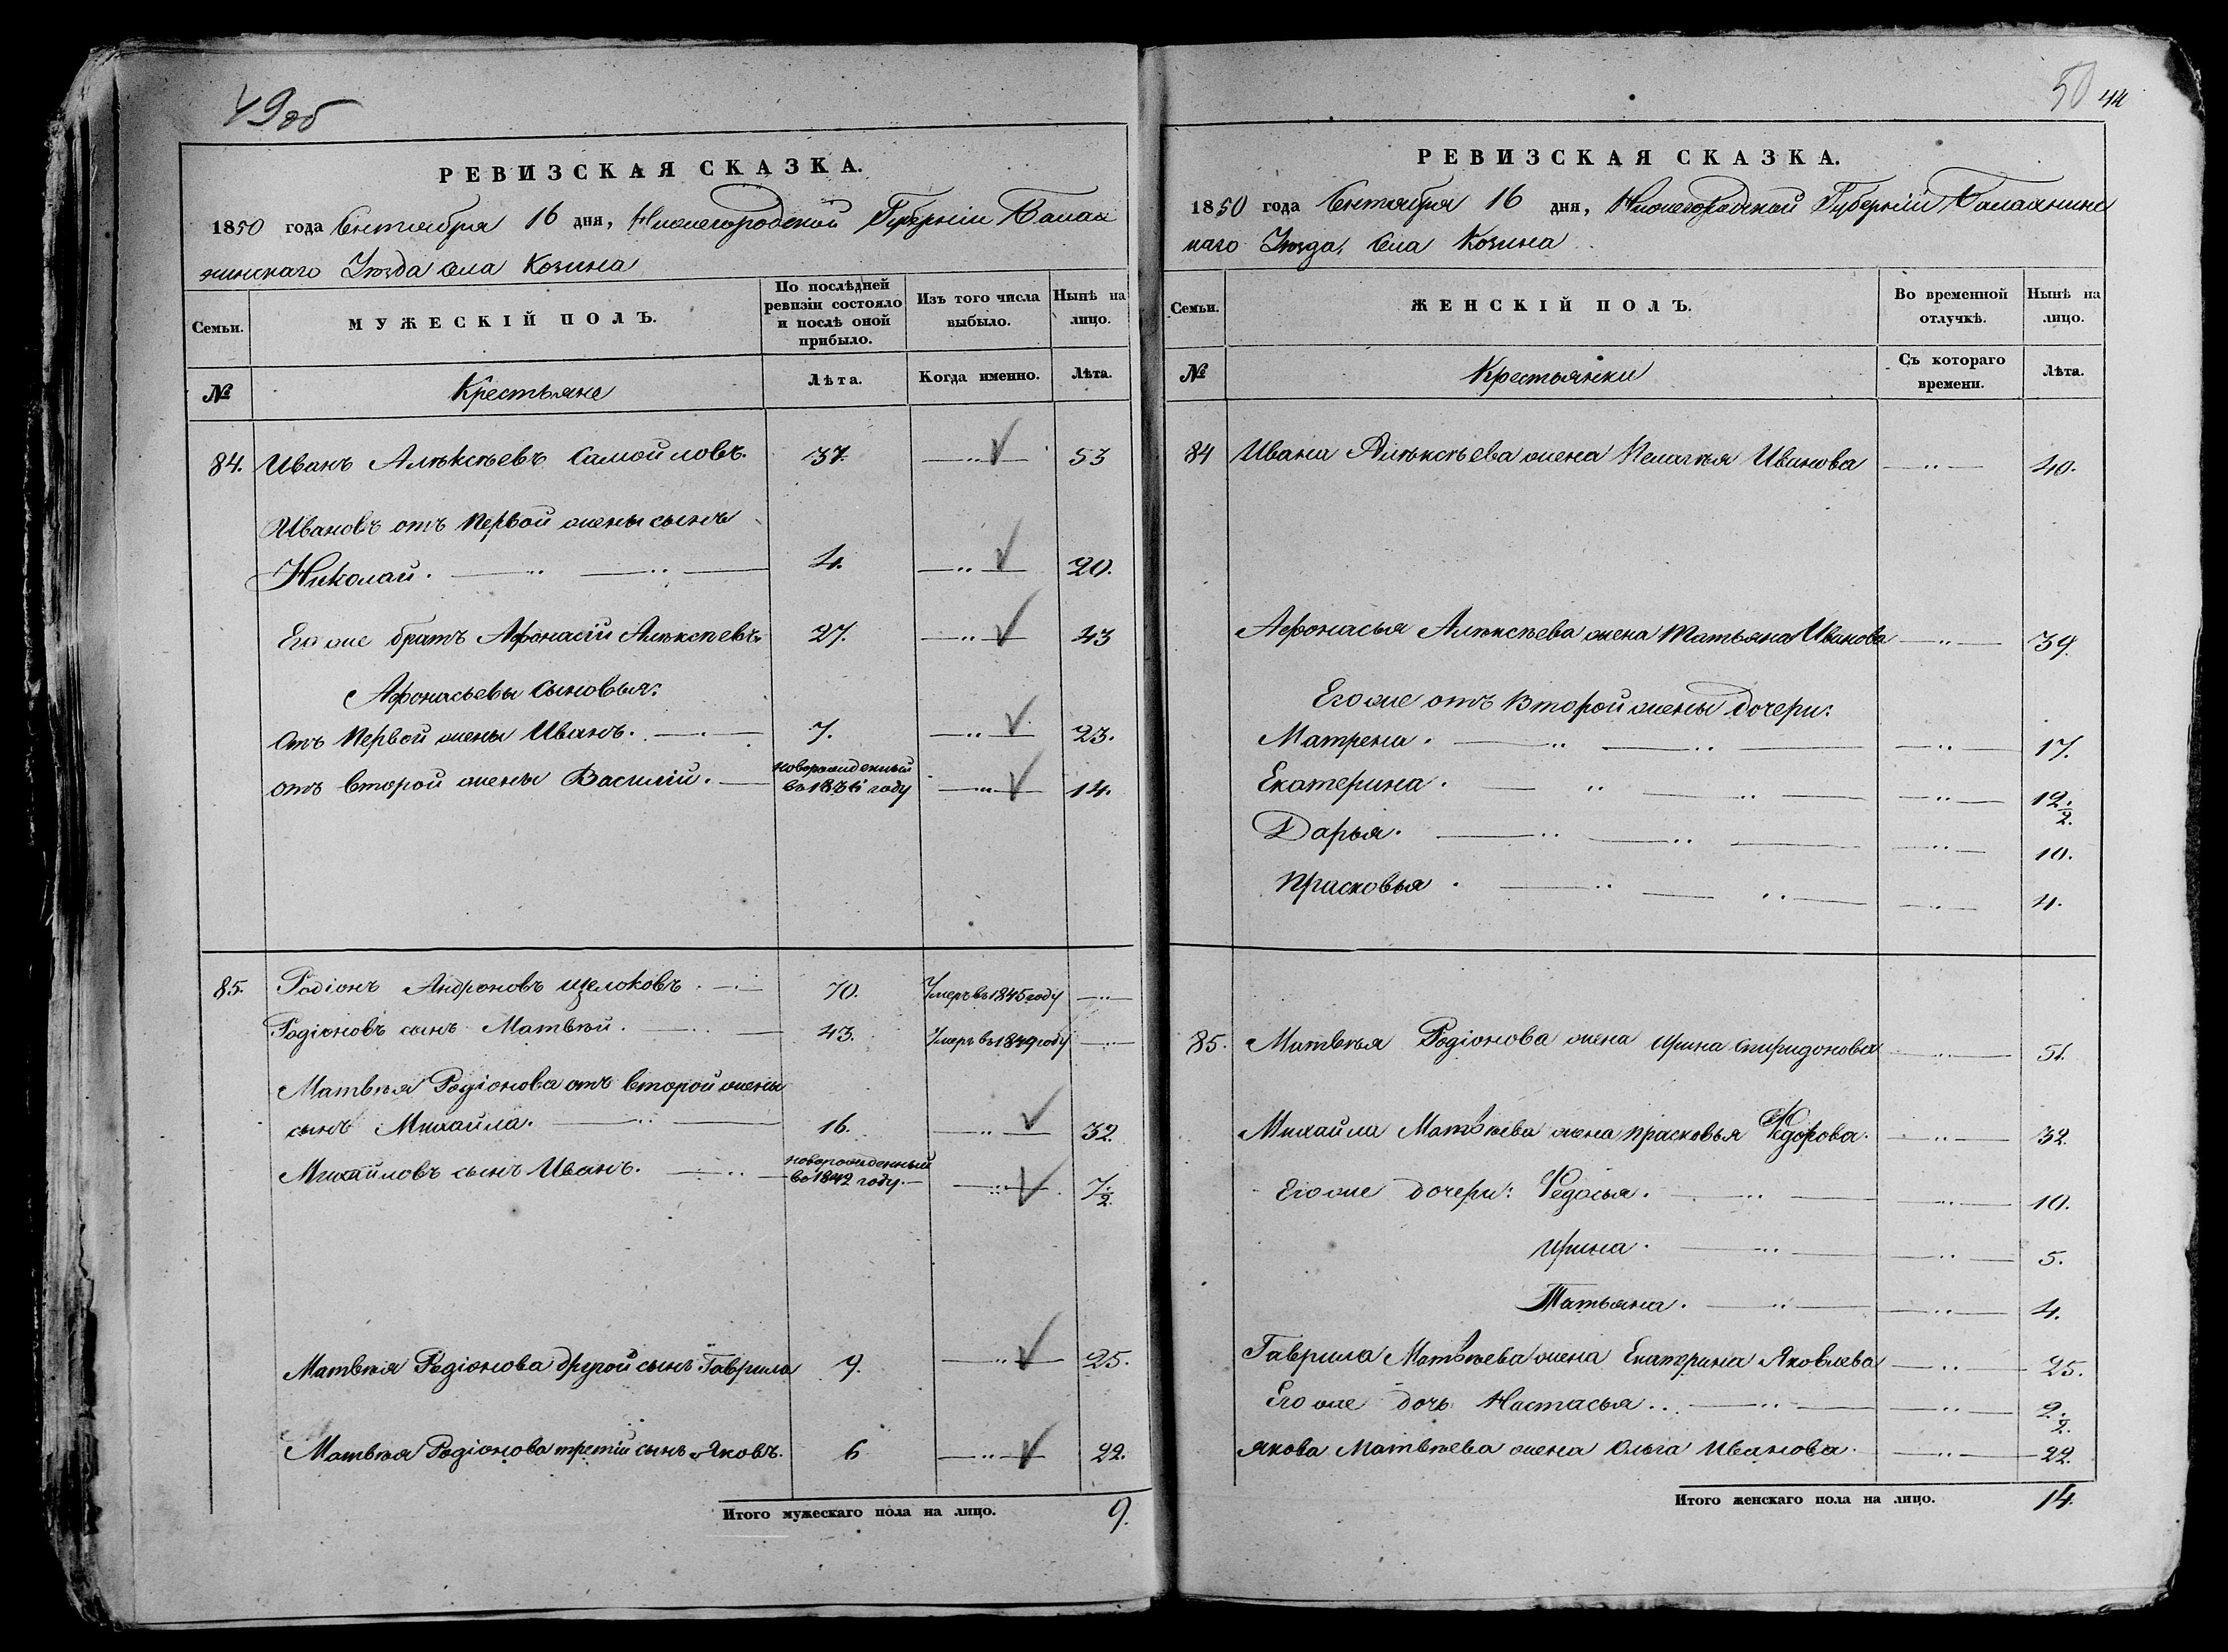 49об
РЕВИЗСКАЯ СКАЗКА.
1850 года Сентября 16 дня, Нижегородской Губерніи Балах
нинскаго Уѣзда села Козина
Семьи.
МУЖЕСКІЙ ПОЛЪ.
По послѣдней ревизіи состояло и послѣ оной прибыло.
Изъ того числа выбыло.
Нынѣ на лицо.
№ Крестьяне Лѣта. Когда именно. Лѣта.
84. Иванъ Алѣксѣевъ Самойловъ. 37. —"— 53
Ивановъ отъ первой жены сынъ
Николай. — " — " — 4. —"— 20.
Его же братъ Афонасій Алѣксѣевъ. 27. —"— 43
Афонасьевы сыновья:
Отъ первой жены Иванъ. —"— 7. —"— 23.
отъ второй жены Василій. — новорожденный въ 1836 году —"— 14.
85. Родіонъ Андроновъ Щелоковъ. —"— 70. Умеръ въ 1845 году —"—
Родіоновъ сынъ Матвѣй. —"— 43. Умеръ въ 1849 году —"—
Матвѣя Родіонова отъ второй жены
сынъ Михайла. —"— 16. —"— 32.
Михайловъ сынъ Иванъ. —"— новорожденный въ 1842 году. —"— 7. 1/2.
Матвѣя Родіонова другой сынъ Гаврила 9. —"— 25.
Матвѣя Родіонова третій сынъ Яковъ. 6 —"— 22.
Итого мужескаго пола на лицо. 9.
50 44
РЕВИЗСКАЯ СКАЗКА.
1850 года Сентября 16 дня, Нижегородской Губерніи Балахнинс
каго Уѣзда, Села Козина
Семьи.
ЖЕНСКІЙ ПОЛЪ.
Во временной отлучкѣ.
Нынѣ на лицо.
№ Крестьянки Съ котораго времени. Лѣта.
84 Ивана Алѣксѣева жена Пелагѣя Иванова —"— 40.
Афонасья Алѣксѣева жена Татьяна Иванова —"— 39.
Его же отъ второй жены дочери:
Матрена. — " — " — —"— 17.
Екатерина. — " — " — —"— 12. 1/2.
Дарья. — " — " — —"— 10.
Прасковья. — " — " — —"— 4.
85. Матвѣя Родіонова жена Ирина Спиридонова —"— 51.
Михайла Матвѣева жена Прасковья Федорова. —"— 32.
Его же дочери: Федосья. —"— —"— 10.
Ирина. —"— —"— 5.
Татьяна. —"— —"— 4.
Гаврила Матвѣева жена Екатерина Яковлева —"— 25.
Его же дочь Настасья. —"— —"— 2. 1/2.
Якова Матвѣева жена Ольга Иванова. —"— 22.
Итого женскаго пола на лицо. 14.